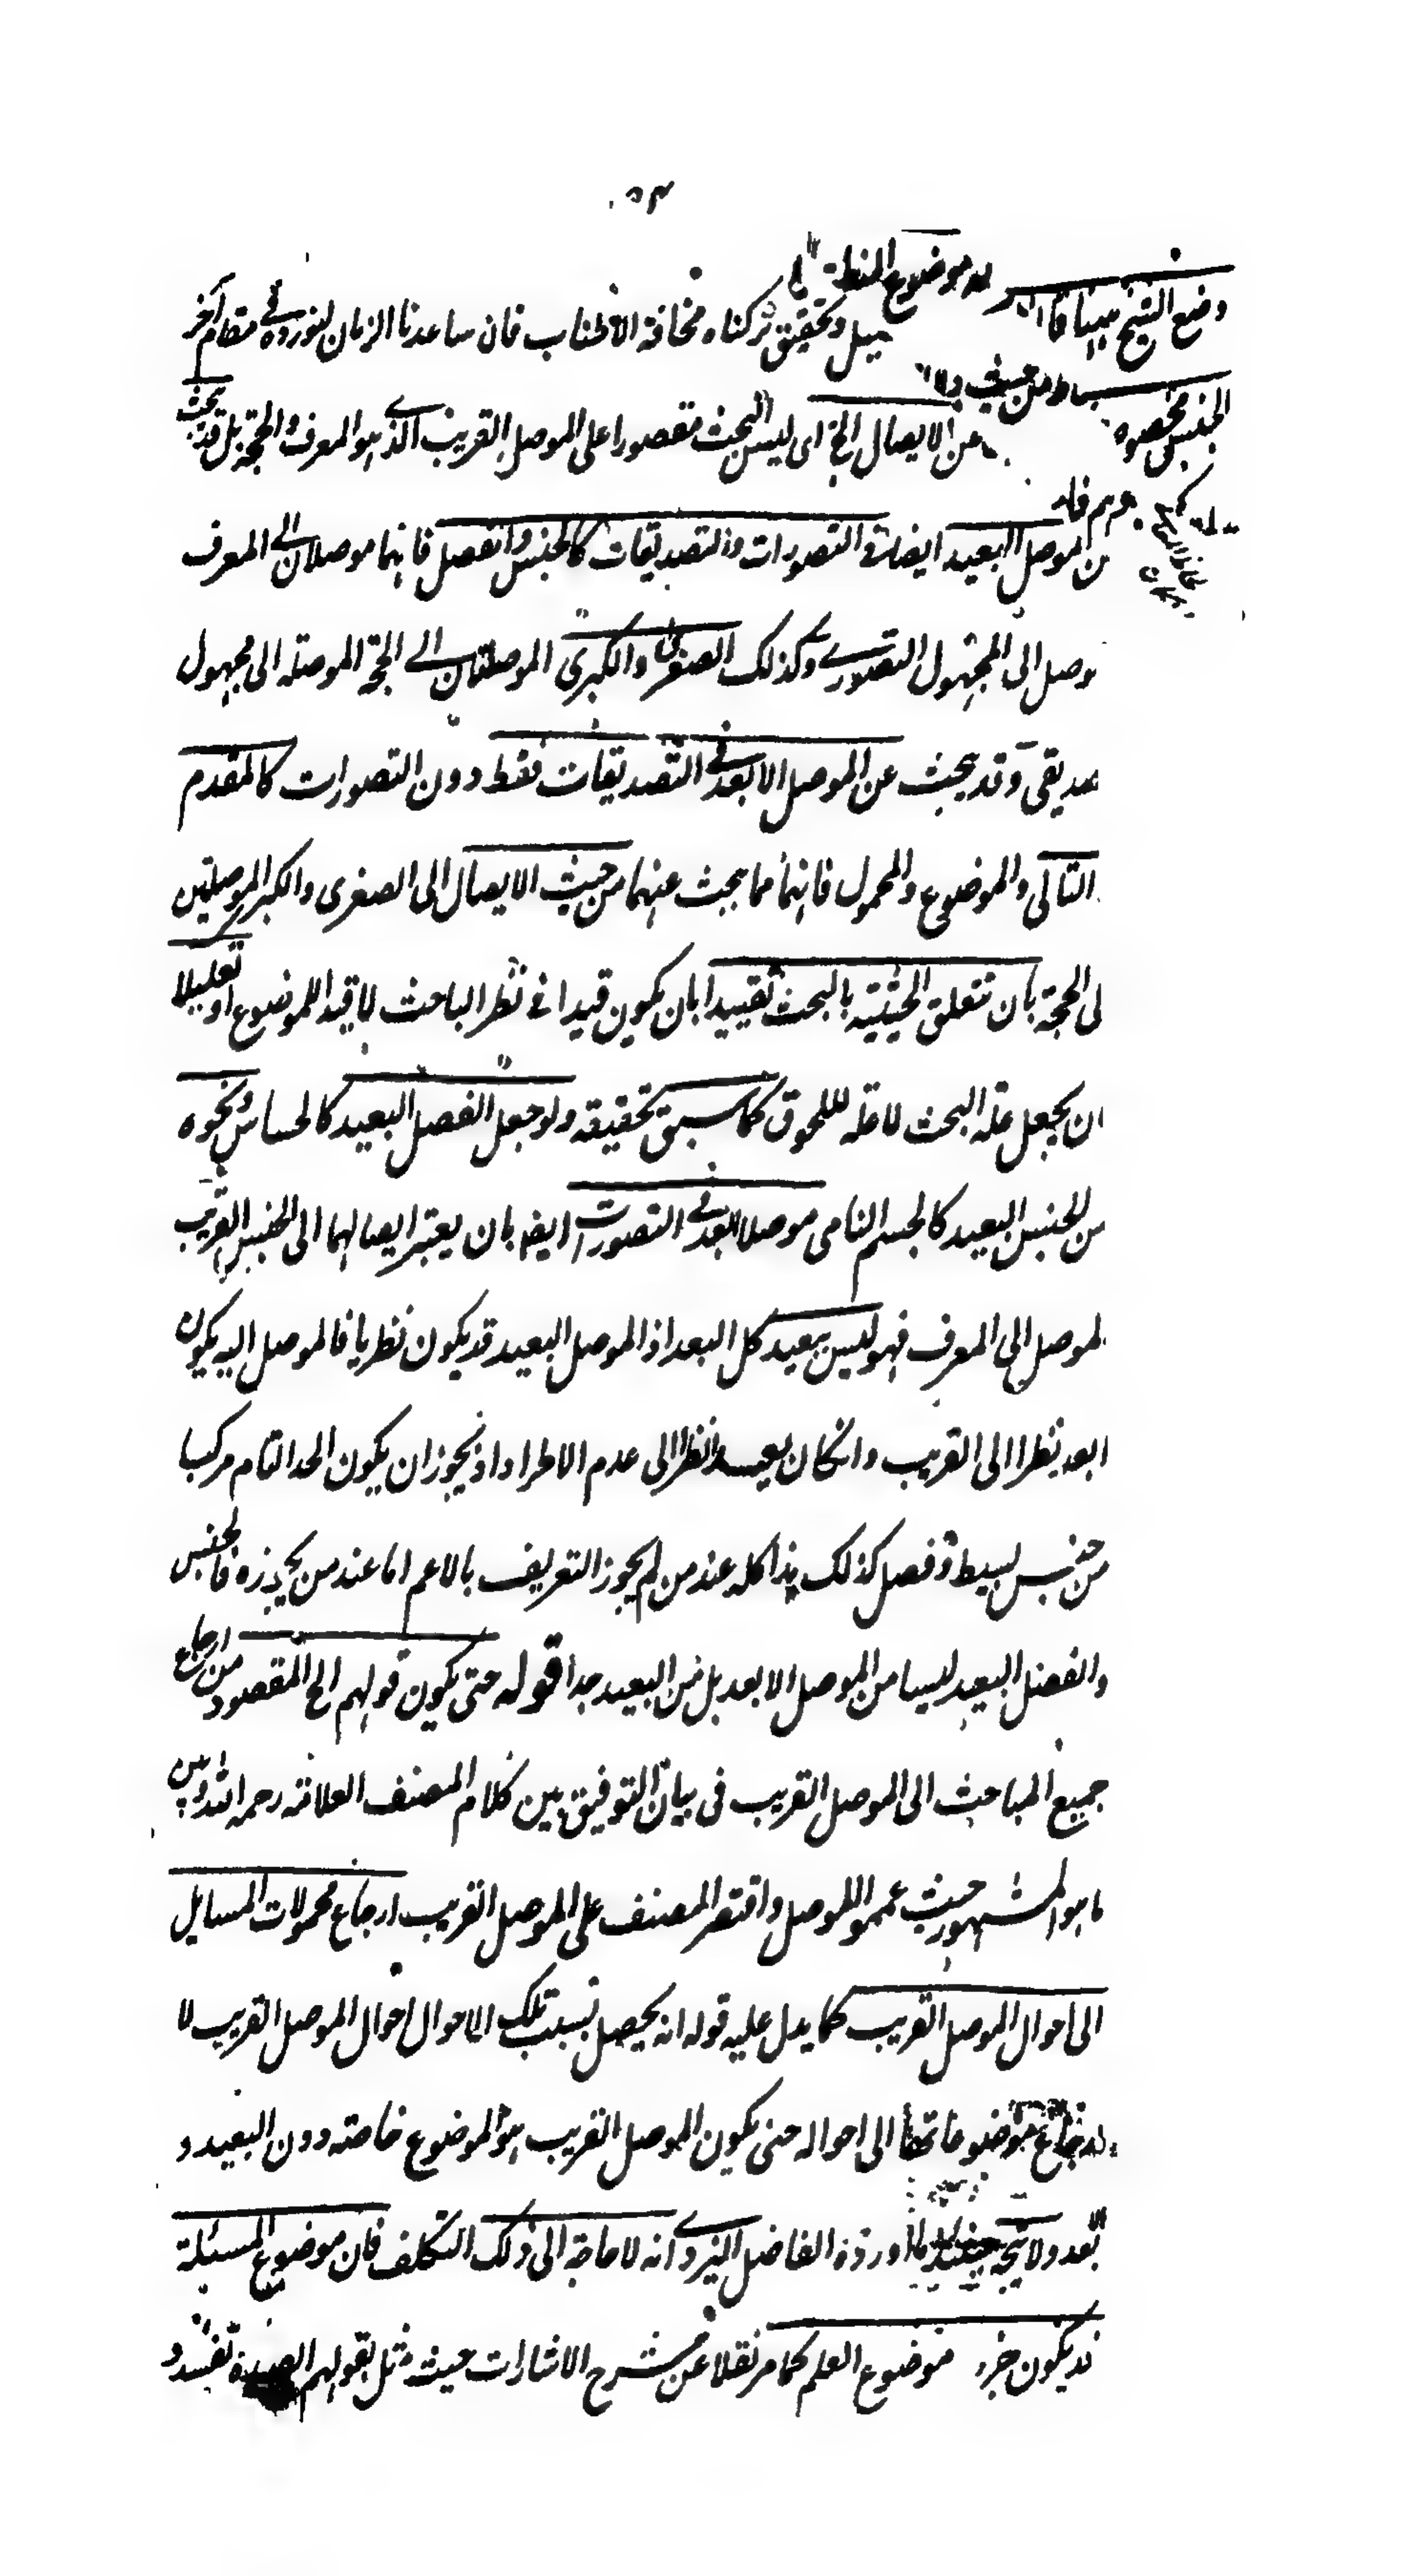 ٥٣
موضوع المنطق
وضع الشيخ مبينا
وتحقيق تركناه مخافة الاطناب فان ساعدنا الزمان لنورده فى مقام آخر
الجنس مخصوصه من حيث
عن الايصال الخ اى ليس البحث مقصورا على الموصل القريب الذى هو المعرف والحجة بل قد يبحث
الموصل البعيد ايضا فى التصورات والتصديقات كالجنس والفصل فانهما موصلان الى المعرف
موصل الى المجهول التصورى وكذلك الصغرى والكبرى الموصلتان الى الحجة الموصلة الى مجهول
صديقى وقد يبحث عن الموصل الابعد فى التصديقات فقط دون التصورات كالمقدم
التالى والموضوع والمحمول فانهما مما يبحث عنهما من حيث الايصال الى الصغرى والكبرى الموصلتين
لى الحجة بان تتعلق الحيثية بالبحث تقييدا بان يكون قيدا فى نظر الباحث لا قيد الموضوع او تعليلا
ان يجعل علة البحث لا علة للحوق كما سبق تحقيقه ولو جعل الفصل البعيد كالحساس ونحوه
من الجنس البعيد كالجسم النامى موصلا ابعد فى التصورات ايضا بان يعتبر ايصالهما الى الجنس القريب
لموصل الى المعرف فهو ليس ببعيد كل البعد اذ الموصل البعيد قد يكون نظريا فالموصل اليه يكون
ابعد نظرا الى القريب وان كان بعيدا نظرا الى عدم الاطراد اذ يجوز ان يكون الحد التام مركبا
من جنس بسيط وفصل كذلك هذا كله عند من لم يجوز التعريف بالاعم اما عند من يجوزه فالجنس
والفصل البعيد ليسا من الموصل الابعد بل من البعيد جدا قوله حتى يكون قولهم الخ المقصود من ارجاع
جميع المباحث الى الموصل القريب فى بيان التوفيق بين كلام المصنف العلامة رحمه الله وبين
ما هو المشهور حيث عمموا الموصل واقتصر المصنف على الموصل القريب ارجاع محمولات المسايل
الى احوال الموصل القريب كما يدل عليه قوله انه يحصل بسبب تلك الاحوال احوال الموصل القريب لا
ارجاع موضوعاتها الى احواله حتى يكون الموصل القريب هو الموضوع خاصة دون البعيد و
ابعد ولا يتجه حينئذ ما اورده الفاضل اليزدى انه لا حاجة الى ذلك التكلف فان موضوع المسئلة
قد يكون جزء موضوع العلم كما مر نقلا عن شرح الاشارات حيث مثل بقولهم الصورة تفسد و